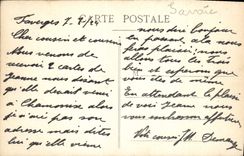 Savoie
CARTE POSTALE
Faverges 7.
Cher cousin et cousine
Nous venons de
recevoir 2 cartes de
Jeanne nous disant
qu'elle devait venir
à Chamonix alors
je n'ai pas son
adresse mais dites
lui qu'elle vienne
nous dire bonjour
en passant cela nous
fera plaisir, nous
allons tous les trois
bien et espérons que
vous êtes de même
En attendant le plaisir
de voir Jeanne nous
vous embrassons affectueusement
Votre cousin